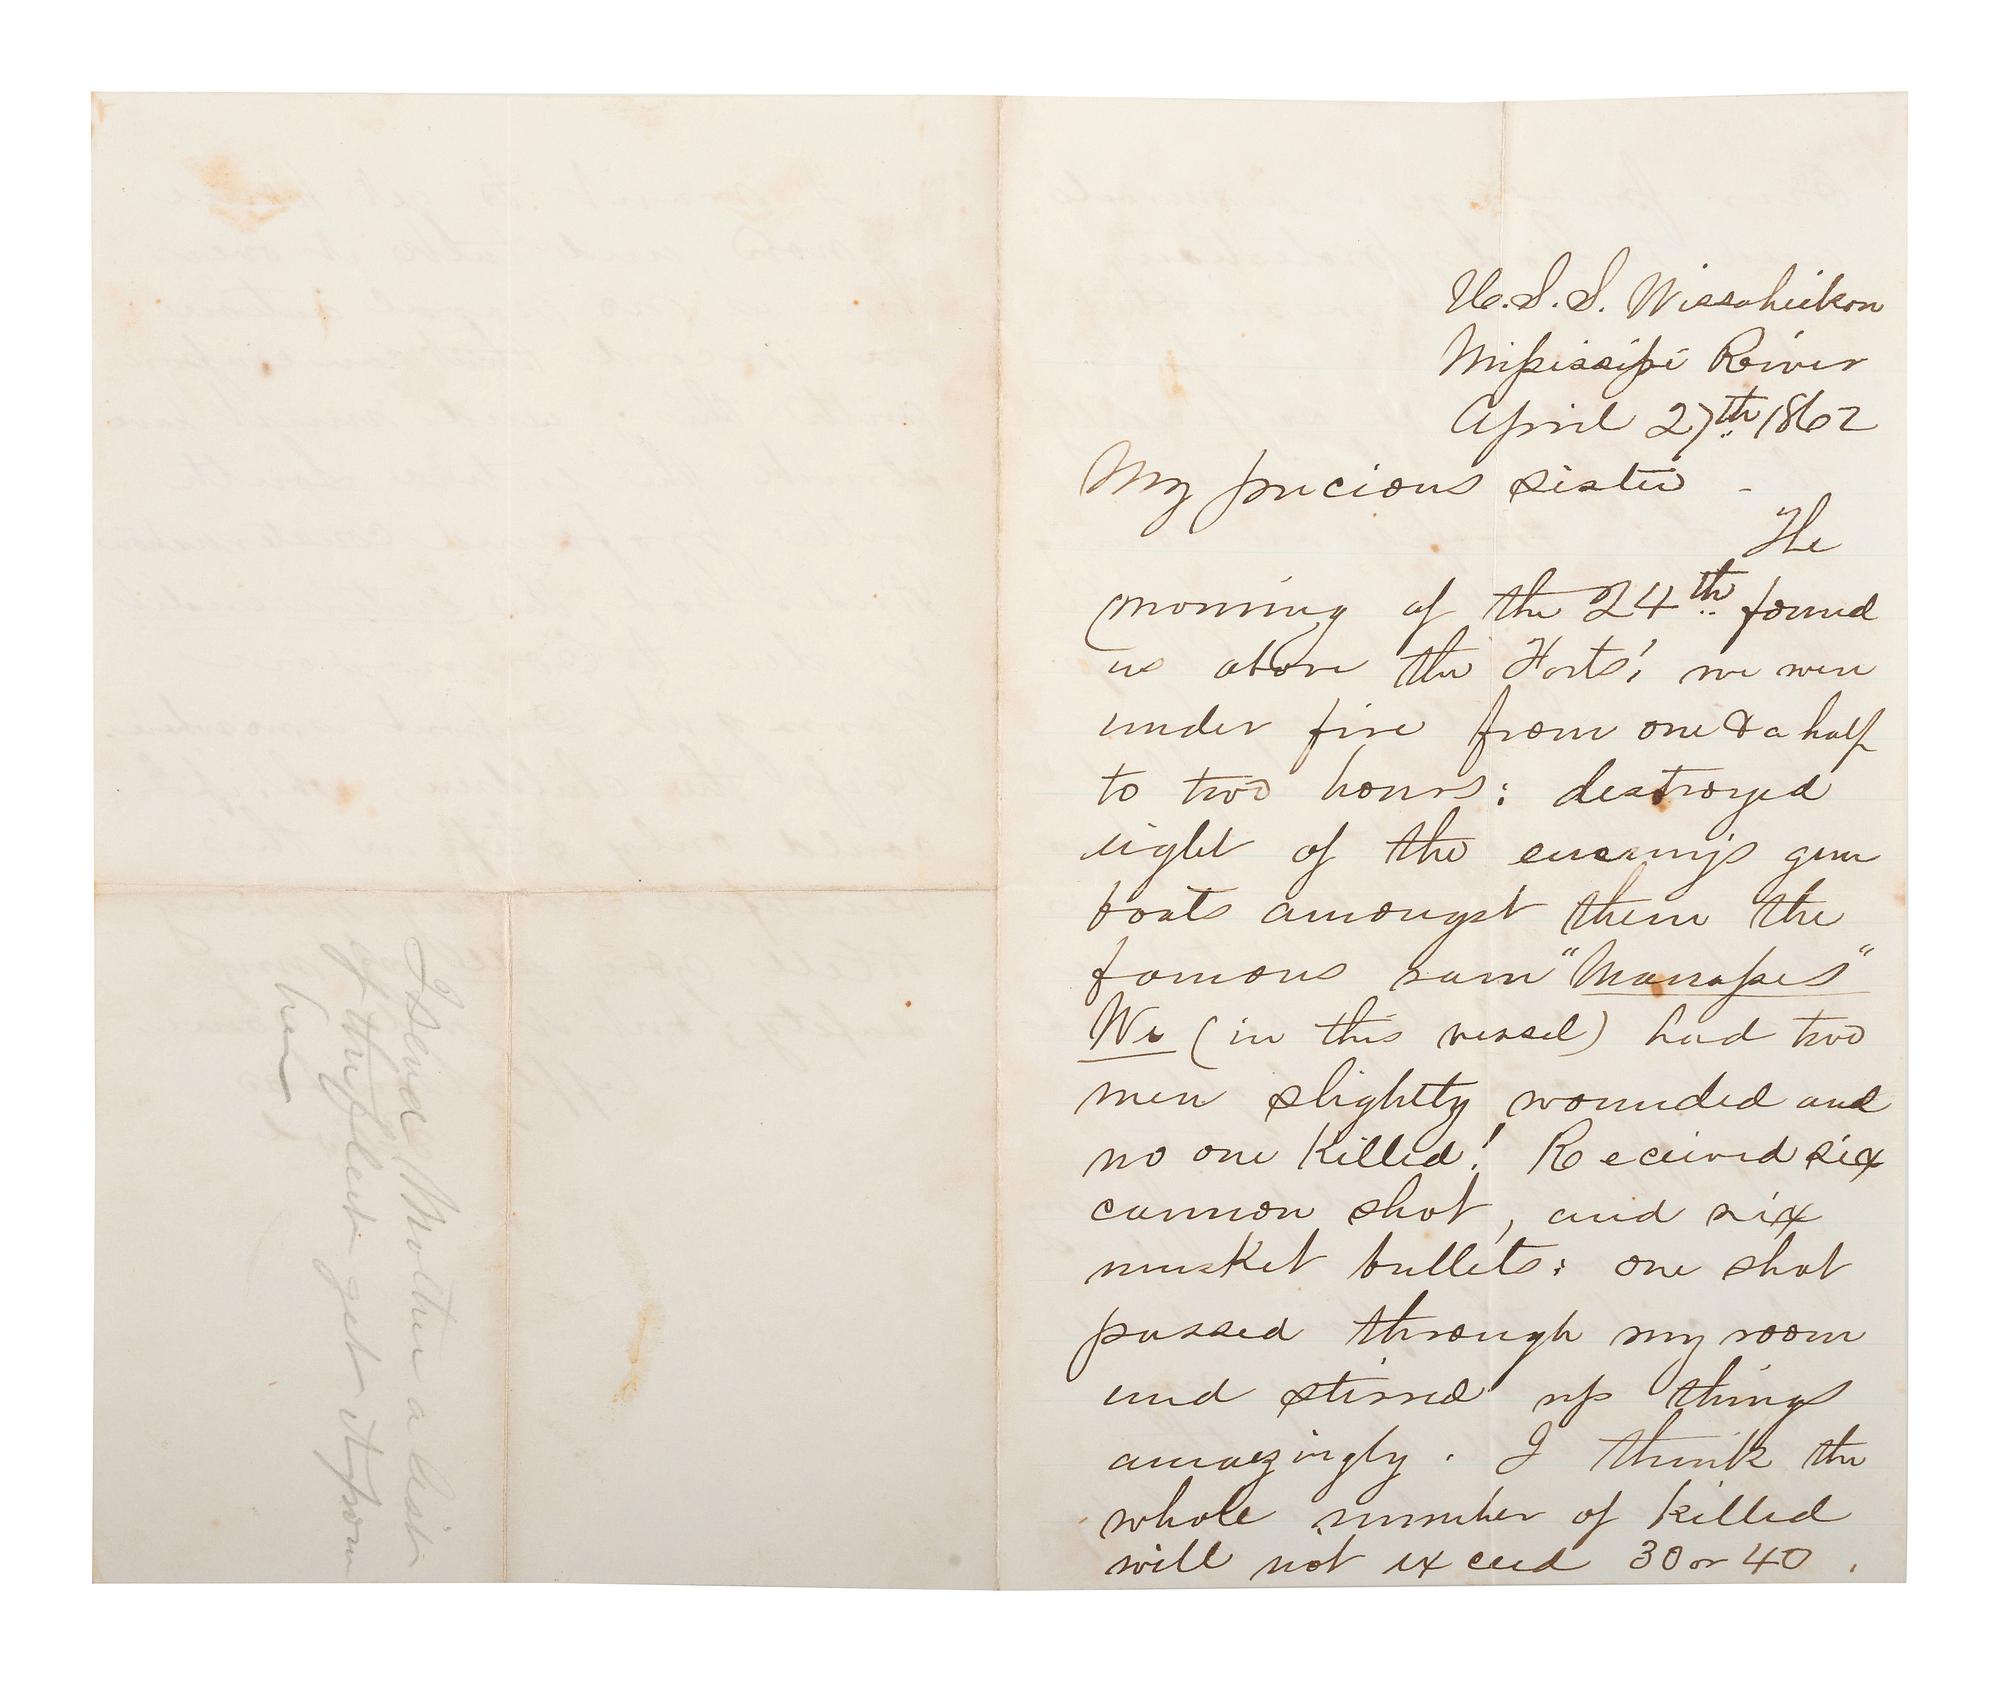 U.S.S. Wissahickon
Missisippi River
April 27th 1862
My precious sister -
The
morning of the 24th found
us above the Forts! we were
under fire from one & a half
to two hours: destroyed
eight of the enemy's gun
boats amongst them the
famous ram "Manasses"
We (in this vessel) had two
men slightly wounded and
no one killed! Received six
cannon shot, and six
musket bullets: one shot
passed through my room
and stirred up things
amazingly. I think the
whole number of killed
will not exceed 30 or 40.
I send Mother a list
of the fleet get it from
her